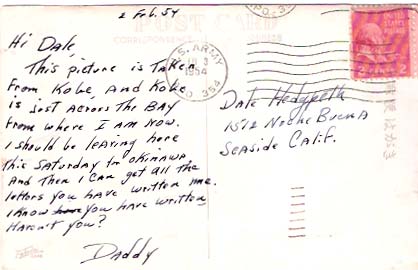 2 Feb. 54
POST CARD
CORRESPONDENCE
ADDRESS
Hi Dale,
This picture is taken
from Kobe, and Kobe
is just across the Bay
from where I am now.
I should be leaving here
this Saturday for Okinawa
and then I can get all the
letters you have written me.
I know have you have written
Haven't you?
Daddy
U.S. ARMY
3
1954
APO 354
UNITED STATES
POSTAGE
2
Dale Hedgpeth
1512 Noche Buena
Seaside Calif.